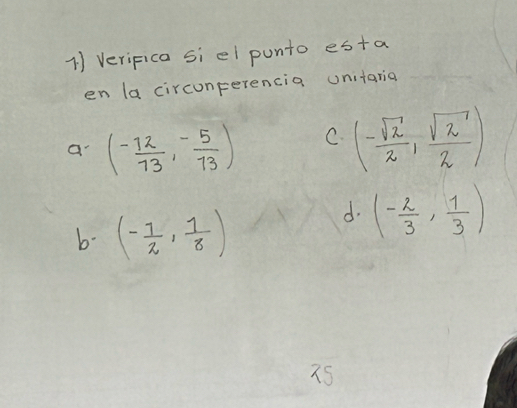 1) Verifica si el punto esta
en la circunferencia unitaria
a- (-12/13, -5/13)
c. (-√2/2, √2/2)
b- (-1/2, 1/8)
d. (-2/3, 1/3)
25